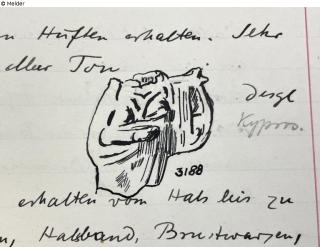 © Melder
n Hüften erhalten. Sehr
eller Ton
desgl
Kypros.
3188
erhalten vom Hals bis zu
n, Halsband, Brustwarzen,